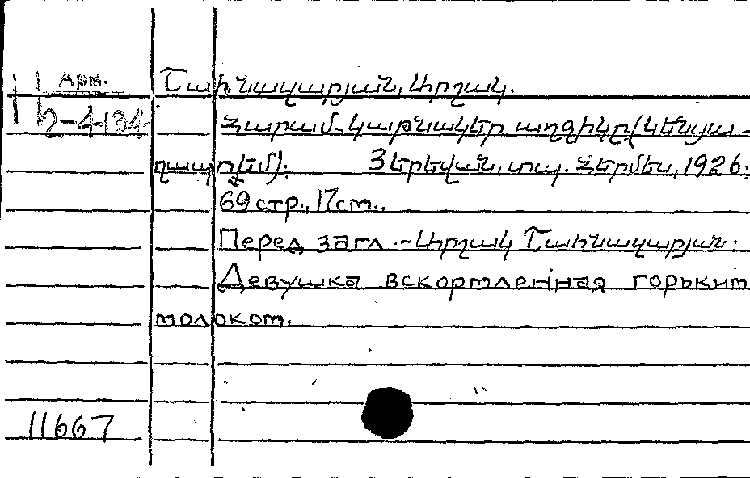 Арм.
2-4-134
Շահնազարյան, Արշակ.
Հարամ-կաթնակեր աղջիկը (կենցա-
ղապոեմ). Յերեվան, տպ. Հերմես, 1926.
69 стр., 17см..
Перед загл.-Արշակ Շահնազարյան.
Девушка вскормленная горьким
молоком.
11667